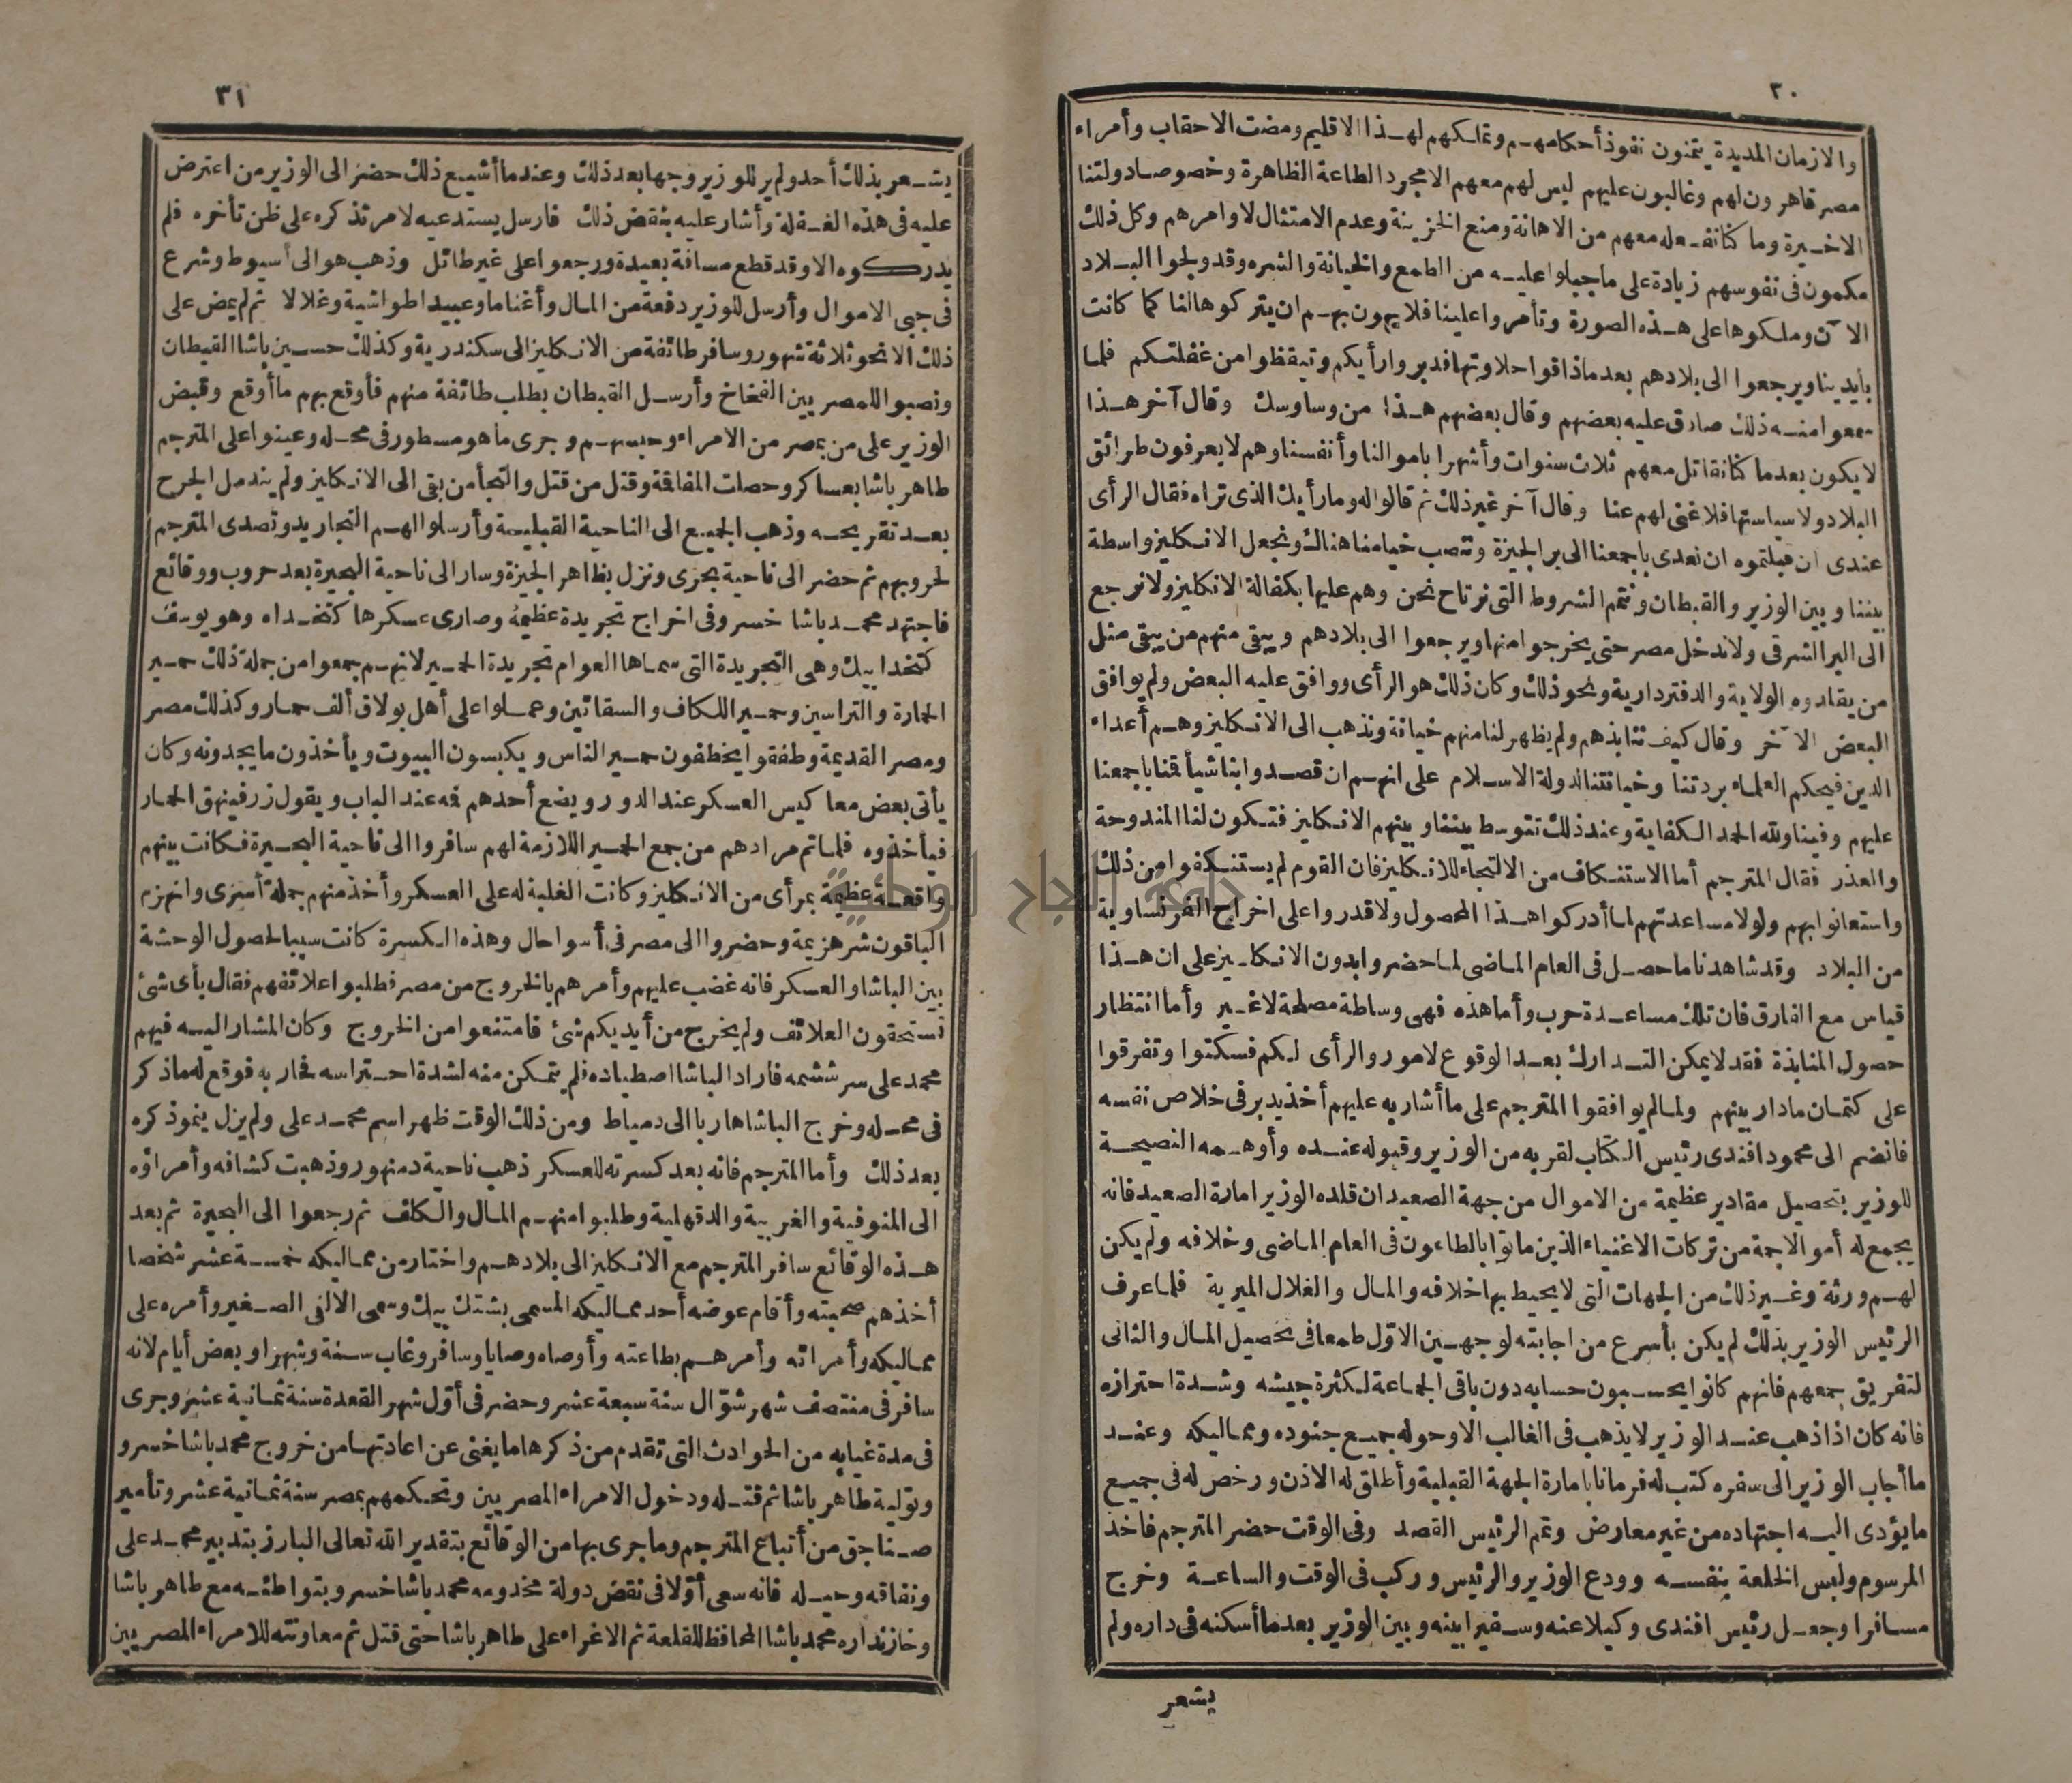 ٣٠
والازمان المديدة يتمنون نفوذ أحكامهم وتملكهم لهذا الاقليم ومضت الاحقاب وأمراء
مصر قاهرون لهم وغالبون عليهم ليس لهم معهم الا مجرد الطاعة الظاهرة وخصوصا دولتنا
الاخيرة وما كنا نفعله معهم من الاهانة ومنع الخزينة وعدم الامتثال لاوامرهم وكل ذلك
مكمون فى نفوسهم زيادة على ما جبلوا عليه من الطمع والخيانة والشره وقد ولجوا البلاد
الآن وملكوها على هذه الصورة وتأمروا علينا فلا يهون بهم ان يتركوها لنا كما كانت
بأيدينا ويرجعوا الى بلادهم بعد ما ذاقوا حلاوتها فدبروا رأيكم وتيقظوا من غفلتكم فلما
سمعوا منه ذلك صادق عليه بعضهم وقال بعضهم هذا من وساوسك وقال آخر هذا
لا يكون بعد ما كنا نقاتل معهم ثلاث سنوات وأشهرا باموالنا وأنفسنا وهم لا يعرفون طرائق
البلاد ولا سياستها فلا غنى لهم عنا وقال آخر غير ذلك ثم قالوا له وما رأيك الذى تراه فقال الرأى
عندى ان قبلتموه ان نعدى باجمعنا الى بر الجيزة وننصب خيامنا هناك ونجعل الانكليز واسطة
بيننا وبين الوزير والقبطان ونتمم الشروط التى نرتاح نحن وهم عليها بكفالة الانكليز ولا نرجع
الى البر الشرقى ولا ندخل مصر حتى يخرجوا منها ويرجعوا الى بلادهم ويبقى منهم من يبقى مثل
من يقلدوه الولاية والدفتردارية ونحو ذلك وكان ذلك هو الرأى ووافق عليه البعض ولم يوافق
البعض الآخر وقال كيف ننابذهم ولم يظهر لنا منهم خيانة ونذهب الى الانكليز وهم أعداء
الدين فيحكم العلماء بردتنا وخيانتنا لدولة الاسلام على انهم ان قصدوا بنا شيأ قمنا باجمعنا
عليهم وفينا ولله الحمد الكفاية وعند ذلك تتوسط بيننا وبينهم الانكليز فتكون لنا المندوحة
والعذر فقال المترجم أما الاستنكاف من الالتجاء للانكليز فان القوم لم يستنكفوا من ذلك
واستعانوا بهم ولولا مساعدتهم لما أدركوا هذا المحصول ولا قدروا على اخراج الفرنساوية
من البلاد وقد شاهدنا ما حصل فى العام الماضى لما حضروا بدون الانكليز على ان هذا
قياس مع الفارق فان تلك مساعدة حرب وأما هذه فهى وساطة مصلحة لا غير وأما انتظار
حصول المنابذة فقد لا يمكن التدارك بعد الوقوع لامور والرأى لكم فسكتوا وتفرقوا
على كتمان ما دار بينهم ولما لم يوافقوا المترجم على ما أشار به عليهم أخذ يدبر فى خلاص نفسه
فانضم الى محمود افندى رئيس الكتاب لقربه من الوزير وقبوله عنده وأوهمه النصيحة
للوزير بتحصيل مقادير عظيمة من الاموال من جهة الصعيد ان قلده الوزير امارة الصعيد فانه
يجمع له أموالا جمة من تركات الاغنياء الذين ماتوا بالطاعون فى العام الماضى وخلافه ولم يكن
لهم ورثة وغير ذلك من الجهات التى لا يحيط بها خلافه والمال والغلال الميرية فلما عرف
الرئيس الوزير بذلك لم يكن بأسرع من اجابته لوجهين الاول طمعا فى تحصيل المال والثانى
لتفريق جمعهم فانهم كانوا يحسبون حسابه دون باقى الجماعة لكثرة جيشه وشدة احترازه
فانه كان اذا ذهب عند الوزير لا يذهب فى الغالب الا وحوله جميع جنوده ومماليكه وعند
ما أجاب الوزير الى سفره كتب له فرمانا بامارة الجهة القبلية وأطلق له الاذن ورخص له فى جميع
ما يؤدى اليه اجتهاده من غير معارض وتمم الرئيس القصد وفى الوقت حضر المترجم فاخذ
المرسوم ولبس الخلعة بنفسه وودع الوزير والرئيس وركب فى الوقت والساعة وخرج
مسافرا وجعل رئيس افندى وكيلا عنه وسفيرا بينه وبين الوزير بعد ما أسكنه فى داره ولم
يشعر
٣١
يشعر بذلك أحد ولم ير للوزير وجها بعد ذلك وعندما أشيع ذلك حضر الى الوزير من اعترض
عليه فى هذه الغفلة وأشار عليه بنقض ذلك فارسل يستدعيه لامر تذكره على ظن تأخره فلم
يدركوه الا وقد قطع مسافة بعيدة ورجعوا على غير طائل وذهب هو الى أسيوط وشرع
فى جبى الاموال وأرسل للوزير دفعة من المال وأغناما وعبيدا طواشية وغلالا ثم لم يمض على
ذلك الا نحو ثلاثة شهور وسافر طائفة من الانكليز الى سكندرية وكذلك حسين باشا القبطان
ونصبوا للمصريين الفخاخ وأرسل القبطان بطلب طائفة منهم فأوقع بهم ما أوقع وقبض
الوزير على من بمصر من الامراء وحبسهم وجرى ما هو مسطور فى محله وعينوا على المترجم
طاهر باشا بعساكر وحصلت المفاقمة وقتل من قتل والتجأ من بقى الى الانكليز ولم يندمل الجرح
بعد تقريحه وذهب الجميع الى الناحية القبلية وأرسلوا لهم التجاريد وتصدى المترجم
لحروبهم ثم حضر الى ناحية بحرى ونزل بظاهر الجيزة وسار الى ناحية البحيرة بعد حروب ووقائع
فاجتهد محمد باشا خسرو فى اخراج تجريدة عظيمة وصارى عسكرها كتخداه وهو يوسف
كتخدا بيك وهى التجريدة التى سماها العوام تجريدة الحمير لانهم جمعوا من جملة ذلك حمير
الحمارة والتراسين وحمير اللكاف والسقائين وعملوا على أهل بولاق ألف حمار وكذلك مصر
ومصر القديمة وطفقوا يخطفون حمير الناس ويكبسون البيوت ويأخذون ما يجدونه وكان
يأتى بعض معاكيس العسكر عند الدور ويضع أحدهم فمه عند الباب ويقول زر فينهق الحمار
فيأخذوه فلما تم مرادهم من جمع الحمير اللازمة لهم سافروا الى ناحية البحيرة فكانت بينهم
واقعة عظيمة بمرأى من الانكليز وكانت الغلبة له على العسكر وأخذ منهم جملة أسرى وانهزم
الباقون شر هزيمة وحضروا الى مصر فى أسوا حال وهذه الكسرة كانت سببا لحصول الوحشة
بين الباشا والعسكر فانه غضب عليهم وأمرهم بالخروج من مصر فطلبوا علائفهم فقال بأى شئ
تستحقون العلائف ولم يخرج من أيديكم شئ فامتنعوا من الخروج وكان المشار اليه فيهم
محمد على سرششمه فاراد الباشا اصطياده فلم يتمكن منه لشدة احتراسه فحاربه فوقع له ما ذكر
فى محله وخرج الباشا هاربا الى دمياط ومن ذلك الوقت ظهر اسم محمد على ولم يزل ينمو ذكره
بعد ذلك وأما المترجم فانه بعد كسرته للعسكر ذهب ناحية دمنهور وذهبت كشافه وأمراؤه
الى المنوفية والغربية والدقهلية وطلبوا منهم المال والكلف ثم رجعوا الى البحيرة ثم بعد
هذه الوقائع سافر المترجم مع الانكليز الى بلادهم واختار من مماليكه خمسة عشر شخصا
أخذهم صحبته وأقام عوضه أحد مماليكه المسمى بشتك بيك وسمى الالفى الصغير وأمره على
مماليكه وأمرائه وأمرهم بطاعته وأوصاه وصايا وسافر وغاب سنة وشهرا وبعض أيام لانه
سافر فى منتصف شهر شوال سنة سبعة عشر وحضر فى أول شهر القعدة سنة ثمانية عشر وجرى
فى مدة غيابه من الحوادث التى تقدم من ذكرها ما يغنى عن اعادتها من خروج محمد باشا خسرو
وتولية طاهر باشا ثم قتله ودخول الامراء المصريين وتحكمهم بمصر سنة ثمانية عشر وتأمير
صناجق من أتباع المترجم وما جرى بها من الوقائع بتقدير الله تعالى البارز بتدبير محمد على
ونفاقه وحيله فانه سعى أولا فى نقض دولة مخدومه محمد باشا خسرو بتواطئه مع طاهر باشا
وخازنداره محمد باشا المحافظ للقلعة ثم الاغراء على طاهر باشا حتى قتل ثم معاونته للامراء المصريين
جامعة النجاح الوطنية